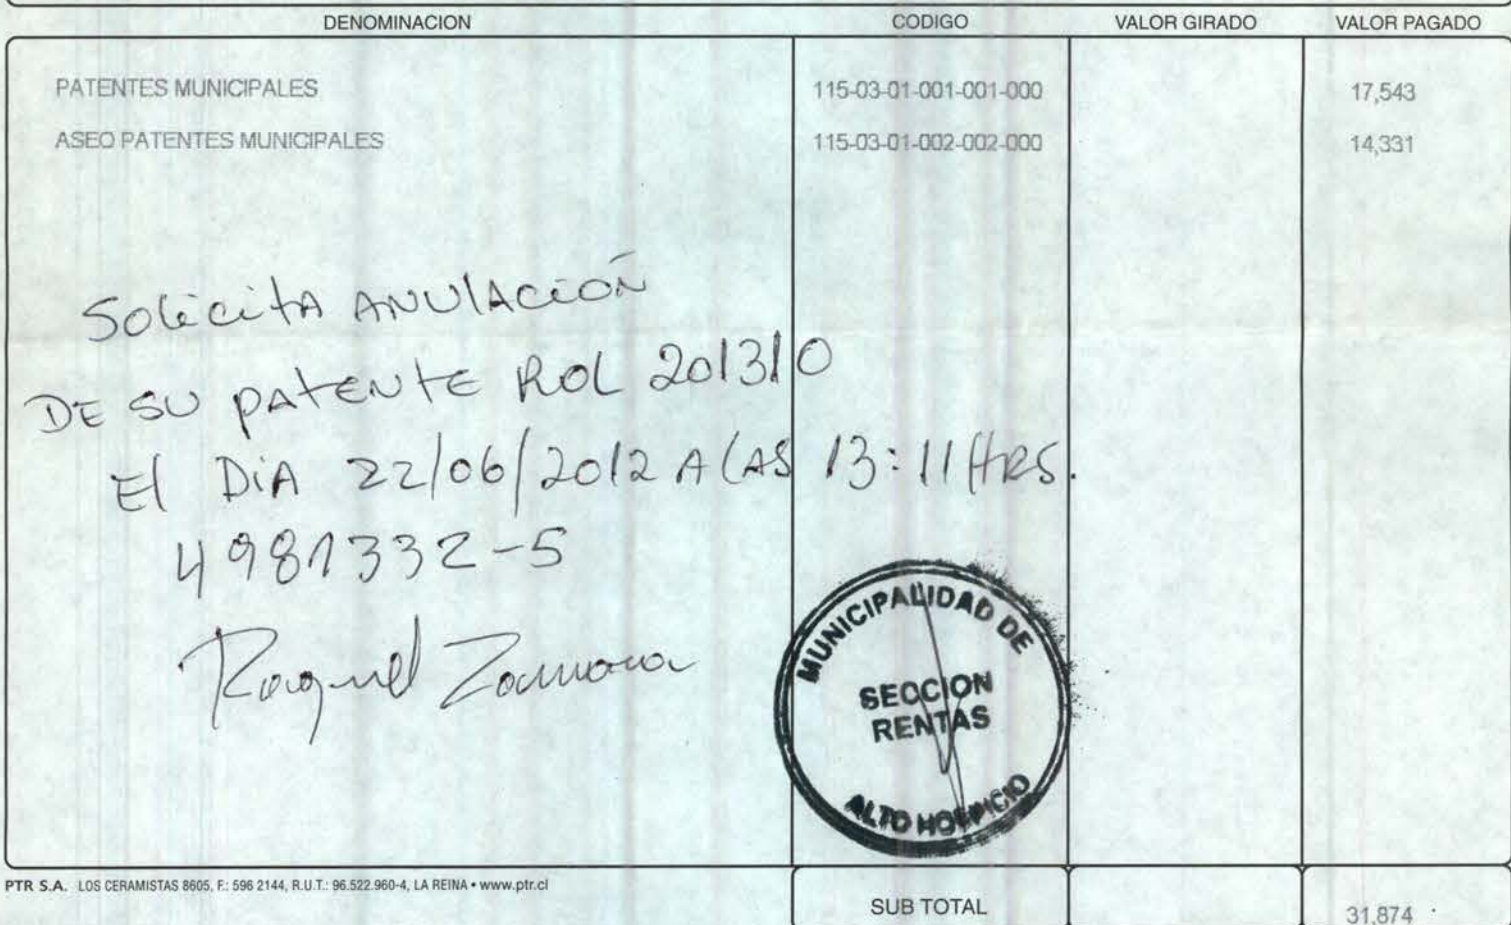 DENOMINACION CODIGO VALOR GIRADO VALOR PAGADO
PATENTES MUNICIPALES 115-03-01-001-001-000 17,543
ASEO PATENTES MUNICIPALES 115-03-01-002-002-000 14,331
SOLICITA ANULACIÓN
DE SU PATENTE ROL 201310
El DIA 22/06/2012 A LAS 13:11 HRS.
4981332-5
Raquel Zamora
MUNICIPALIDAD DE
SECCION
RENTAS
ALTO HOSPICIO
PTR S.A. LOS CERAMISTAS 8605, F.: 596 2144, R.U.T.: 96.522.960-4, LA REINA • www.ptr.cl
SUB TOTAL 31,874